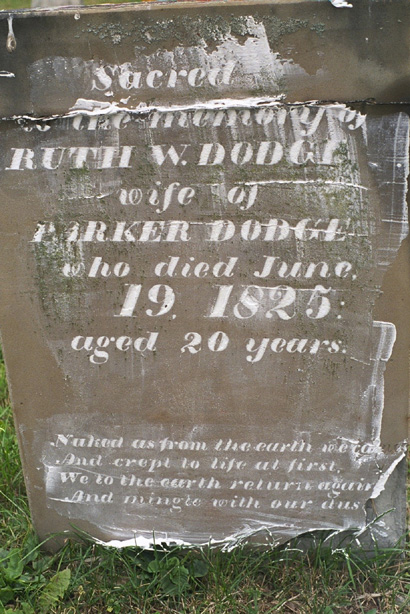 Sacred
to the memory of
RUTH W. DODGE
wife of
PARKER DODGE
who died June,
19, 1825:
aged 20 years.
Naked as from the earth we ca
And crept to life at first,
We to the earth return again
And mingle with our dus